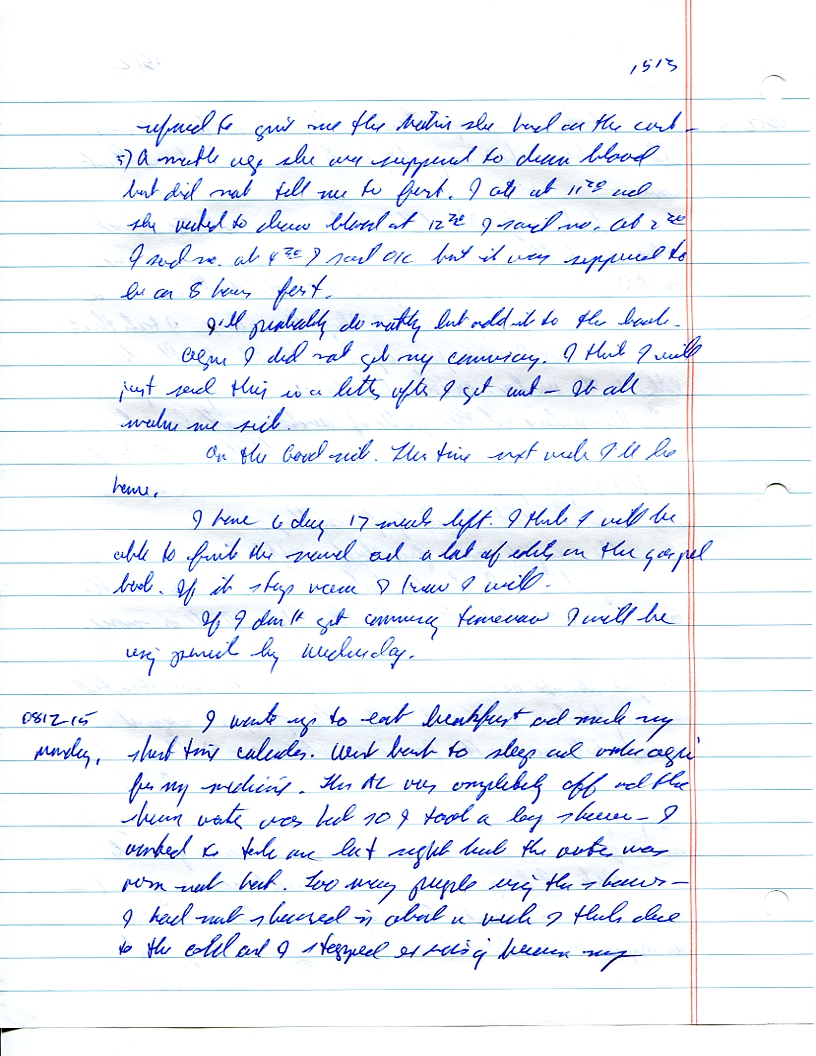 1513
refused to give me the Motrin she had on the cart –
5) A month ago she was supposed to draw blood
but did not tell me to fast. I ate at 11:30 and
she wanted to draw blood at 12:30 I said no. at 2:30
I said no. at 4:30 I said OK but it was supposed to
be an 8 hour fast.
I'll probably do nothing but add it to the book –
Again I did not get my commisary. I think I will
just send this in a letter after I get out – It all
makes me sick.
On the Good side. This time next week I'll be
home.
I have 6 days 17 meals left. I think I will be
able to finish the novel and a lot of edits on the gospel
book. If it stays warm I know I will.
If I don't get commisary tomorrow I will be
using pencil by Wednesday.
0812-15
Monday,
I woke up to eat breakfast and mark my
short time calendar. Went back to sleep and woke again
for my medicine. The AC was completely off and the
shower water was hot so I took a long shower – I
wanted to take one last night but the water was
warm not hot. Too many people using the shower –
I had not showered in about a week I think due
to the cold and I stopped exercising because my